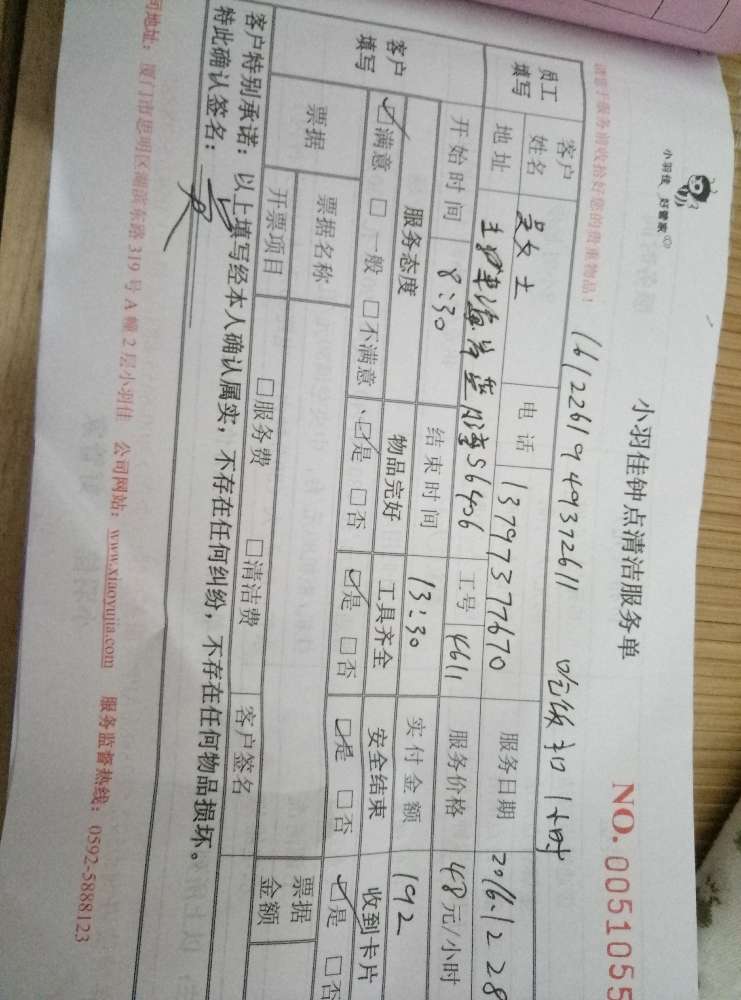 小羽佳 好管家
小羽佳钟点清洁服务单
NO.0051055
1612261949372611 吃饭扣1小时
员工填写
客户姓名 吴女士 电话 13797377670 服务日期 2016.12.28
地址 56406 工号 4611 服务价格 48元/小时
开始时间 8:30 结束时间 13:30 实付金额 192
客户填写
服务态度 物品完好 工具齐全 安全结束 收到卡片
☑满意 □一般 □不满意 ☑是 □否 ☑是 □否 ☑是 □否 ☑是 □否
票据 票据名称 票据金额
开票项目 □服务费 □清洁费 客户签名
客户特别承诺：以上填写经本人确认属实，不存在任何纠纷，不存在任何物品损坏。
特此确认签名：
司地址：厦门市思明区湖滨东路319号A幢2层小羽佳 公司网站：www.xiaoyujia.com 服务监督热线：0592-5888123